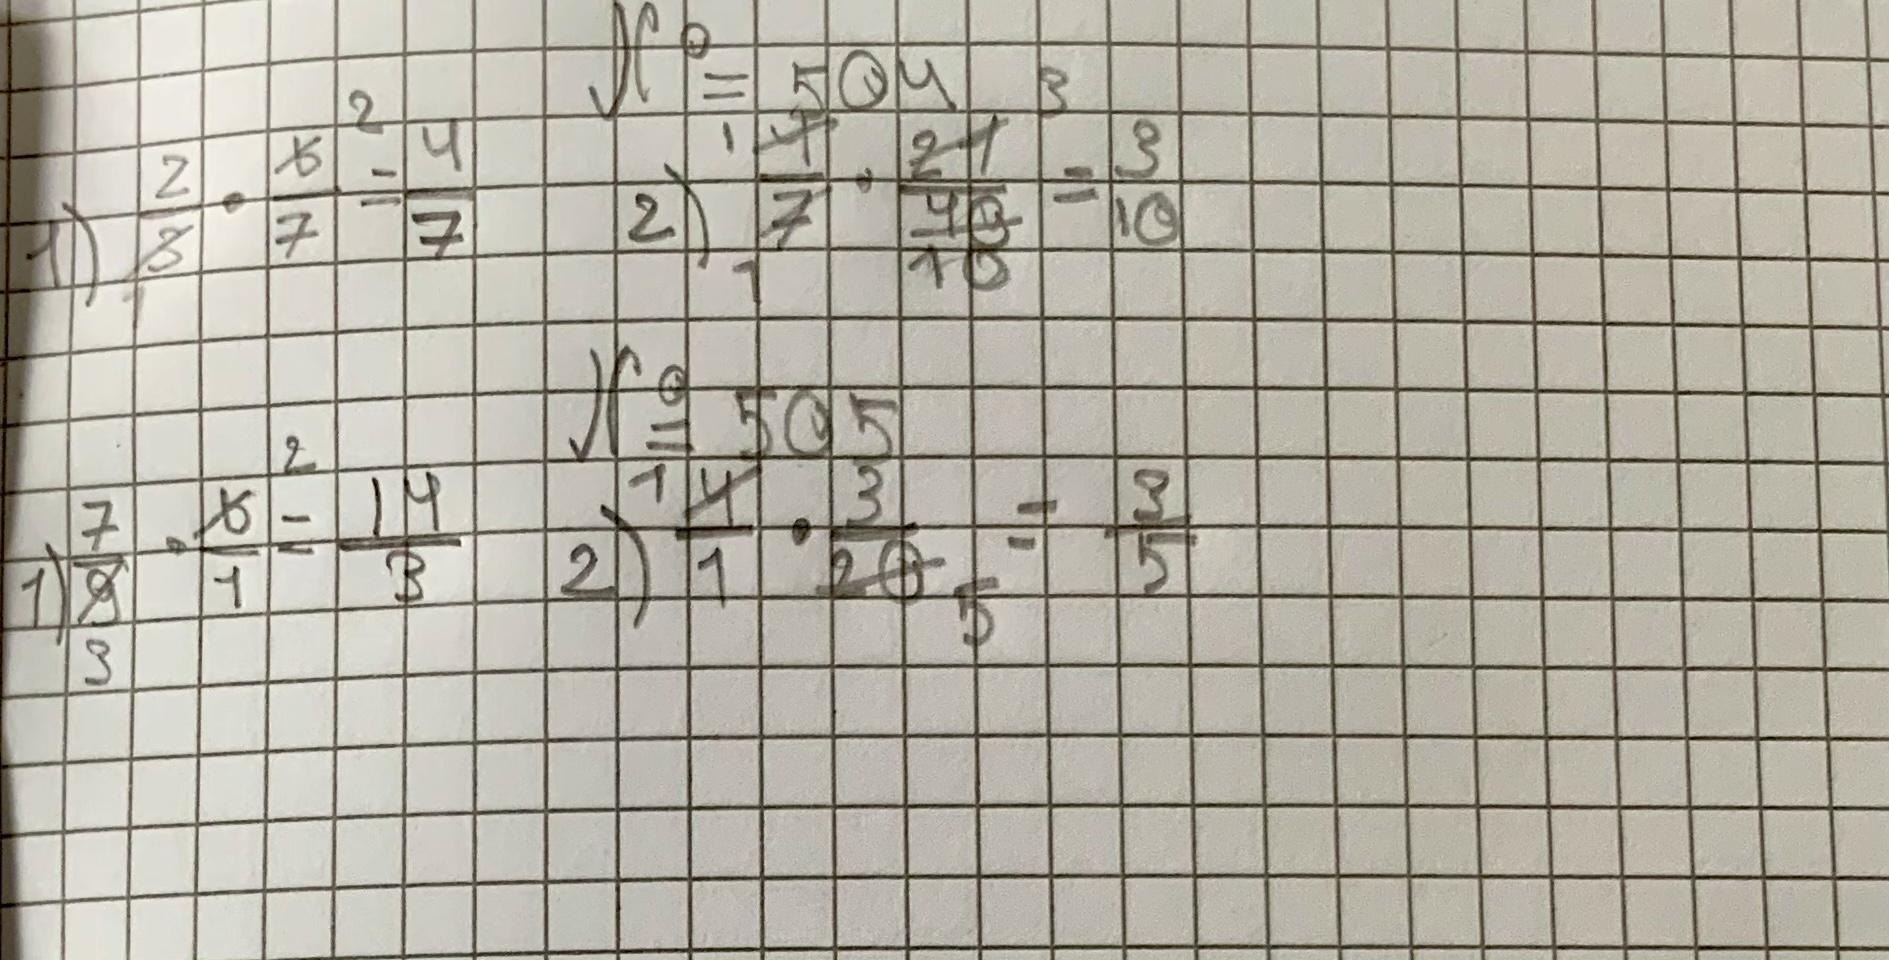 № 504
1) 2/3 · 6/7 = 4/7 2) 4/7 · 21/40 = 3/10
№ 505
1) 7/9 · 6/1 = 14/3 2) 4/1 · 3/20 = 3/5